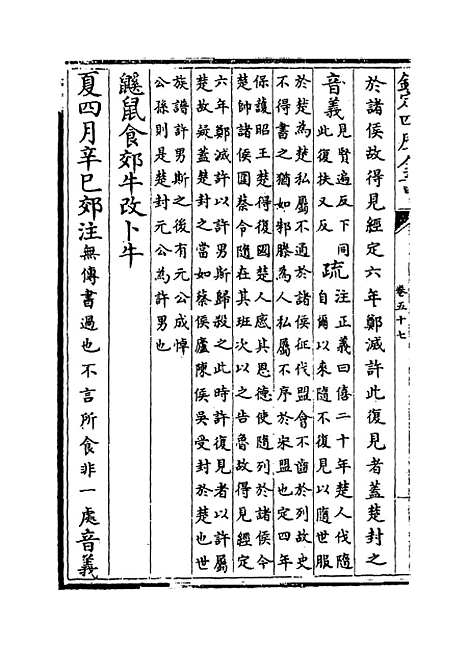 欽定四庫全書
卷五十七
於諸侯故得見經定六年鄭滅許此復見者蓋楚封之
音義見賢遍反下同此復扶又反疏注正義曰僖二十年楚人伐隨自爾以來隨不復見以隨世服
於楚為楚私屬不通於諸侯征伐盟會不齒於列故史
不得書之猶如邾滕為人私屬不序於宋盟也定四年
保護昭王楚得復國楚人感其恩德使隨列於諸侯今
楚師諸侯圍蔡令隨在其班次以之告魯故得見經定
六年鄭滅許以許男斯歸殺之此時許復見者以許屬
楚故疑蓋楚封之當如蔡侯廬陳侯吳受封於楚也世
族譜許男斯之後有元公成悼
公孫則是楚封元公為許男也
鼷鼠食郊牛改卜牛
夏四月辛巳郊注無傳書過也不言所食非一處音義